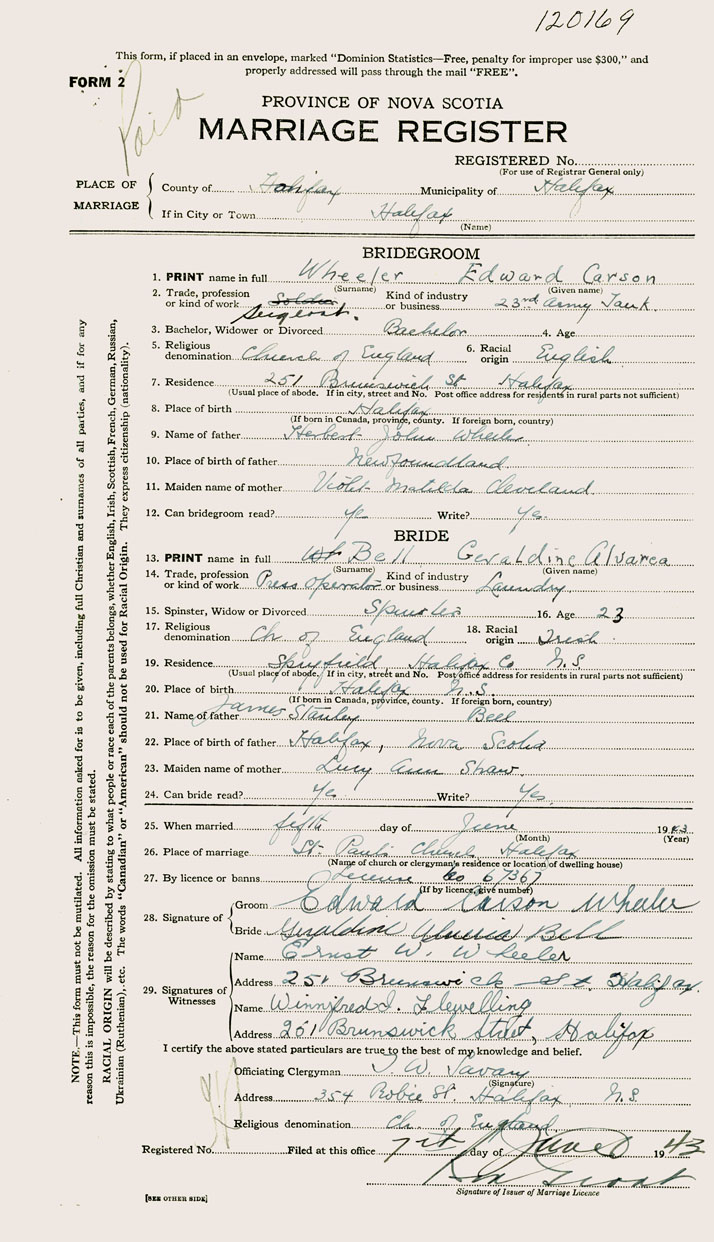 120169
This form, if placed in an envelope, marked "Dominion Statistics—Free, penalty for improper use $300," and
properly addressed will pass through the mail "FREE".
FORM 2
Paid
PROVINCE OF NOVA SCOTIA
MARRIAGE REGISTER
REGISTERED No.
(For use of Registrar General only)
PLACE OF MARRIAGE
County of Halifax Municipality of Halifax
If in City or Town Halifax
(Name)
BRIDEGROOM
1. PRINT name in full Wheeler Edward Carson
(Surname) (Given name)
2. Trade, profession or kind of work Soldier Sergeant. Kind of industry or business 23rd Army Tank.
3. Bachelor, Widower or Divorced Bachelor 4. Age
5. Religious denomination Church of England 6. Racial origin English
7. Residence 251 Brunswick St Halifax
(Usual place of abode. If in city, street and No. Post office address for residents in rural parts not sufficient)
8. Place of birth Halifax
(If born in Canada, province, county. If foreign born, country)
9. Name of father Herbert John Wheeler
10. Place of birth of father Newfoundland.
11. Maiden name of mother Violet Matilda Cleveland.
12. Can bridegroom read? Yes Write? Yes.
BRIDE
13. PRINT name in full Bell Geraldine Alvarea
(Surname) (Given name)
14. Trade, profession or kind of work Press operator Kind of industry or business Laundry
15. Spinster, Widow or Divorced Spinster 16. Age 23
17. Religious denomination Ch of England 18. Racial origin Irish
19. Residence Spryfield Halifax Co N.S.
(Usual place of abode. If in city, street and No. Post office address for residents in rural parts not sufficient)
20. Place of birth Halifax N.S.
(If born in Canada, province, county. If foreign born, country)
21. Name of father James Stanley Bell
22. Place of birth of father Halifax, Nova Scotia
23. Maiden name of mother Lucy Ann Shaw.
24. Can bride read? Yes Write? Yes.
25. When married fifth day of June 1943
(Month) (Year)
26. Place of marriage St. Paul's Church Halifax
(Name of church or clergyman's residence or location of dwelling house)
27. By licence or banns License No 67367
(If by licence, give number)
28. Signature of
Groom Edward Carson Wheeler
Bride Geraldine Bell
29. Signatures of Witnesses
Name Ernst W. Wheeler
Address 251 Brunswick st. Halifax.
Name Winnifred J. Llewelling
Address 251 Brunswick Street, Halifax
I certify the above stated particulars are true to the best of my knowledge and belief.
Officiating Clergyman T. W. Savary
(Signature)
Address 354 Robie St. Halifax N.S.
Religious denomination Ch of England.
Registered No. Filed at this office 7th day of June 1943
Signature of Issuer of Marriage Licence
[SEE OTHER SIDE]
NOTE.—This form must not be mutilated. All information asked for is to be given, including full Christian and surnames of all parties, and if for any
reason this is impossible, the reason for the omission must be stated.
RACIAL ORIGIN will be described by stating to what people or race each of the parents belongs, whether English, Irish, Scottish, French, German, Russian,
Ukrainian (Ruthenian), etc. The words "Canadian" or "American" should not be used for Racial Origin. They express citizenship (nationality).